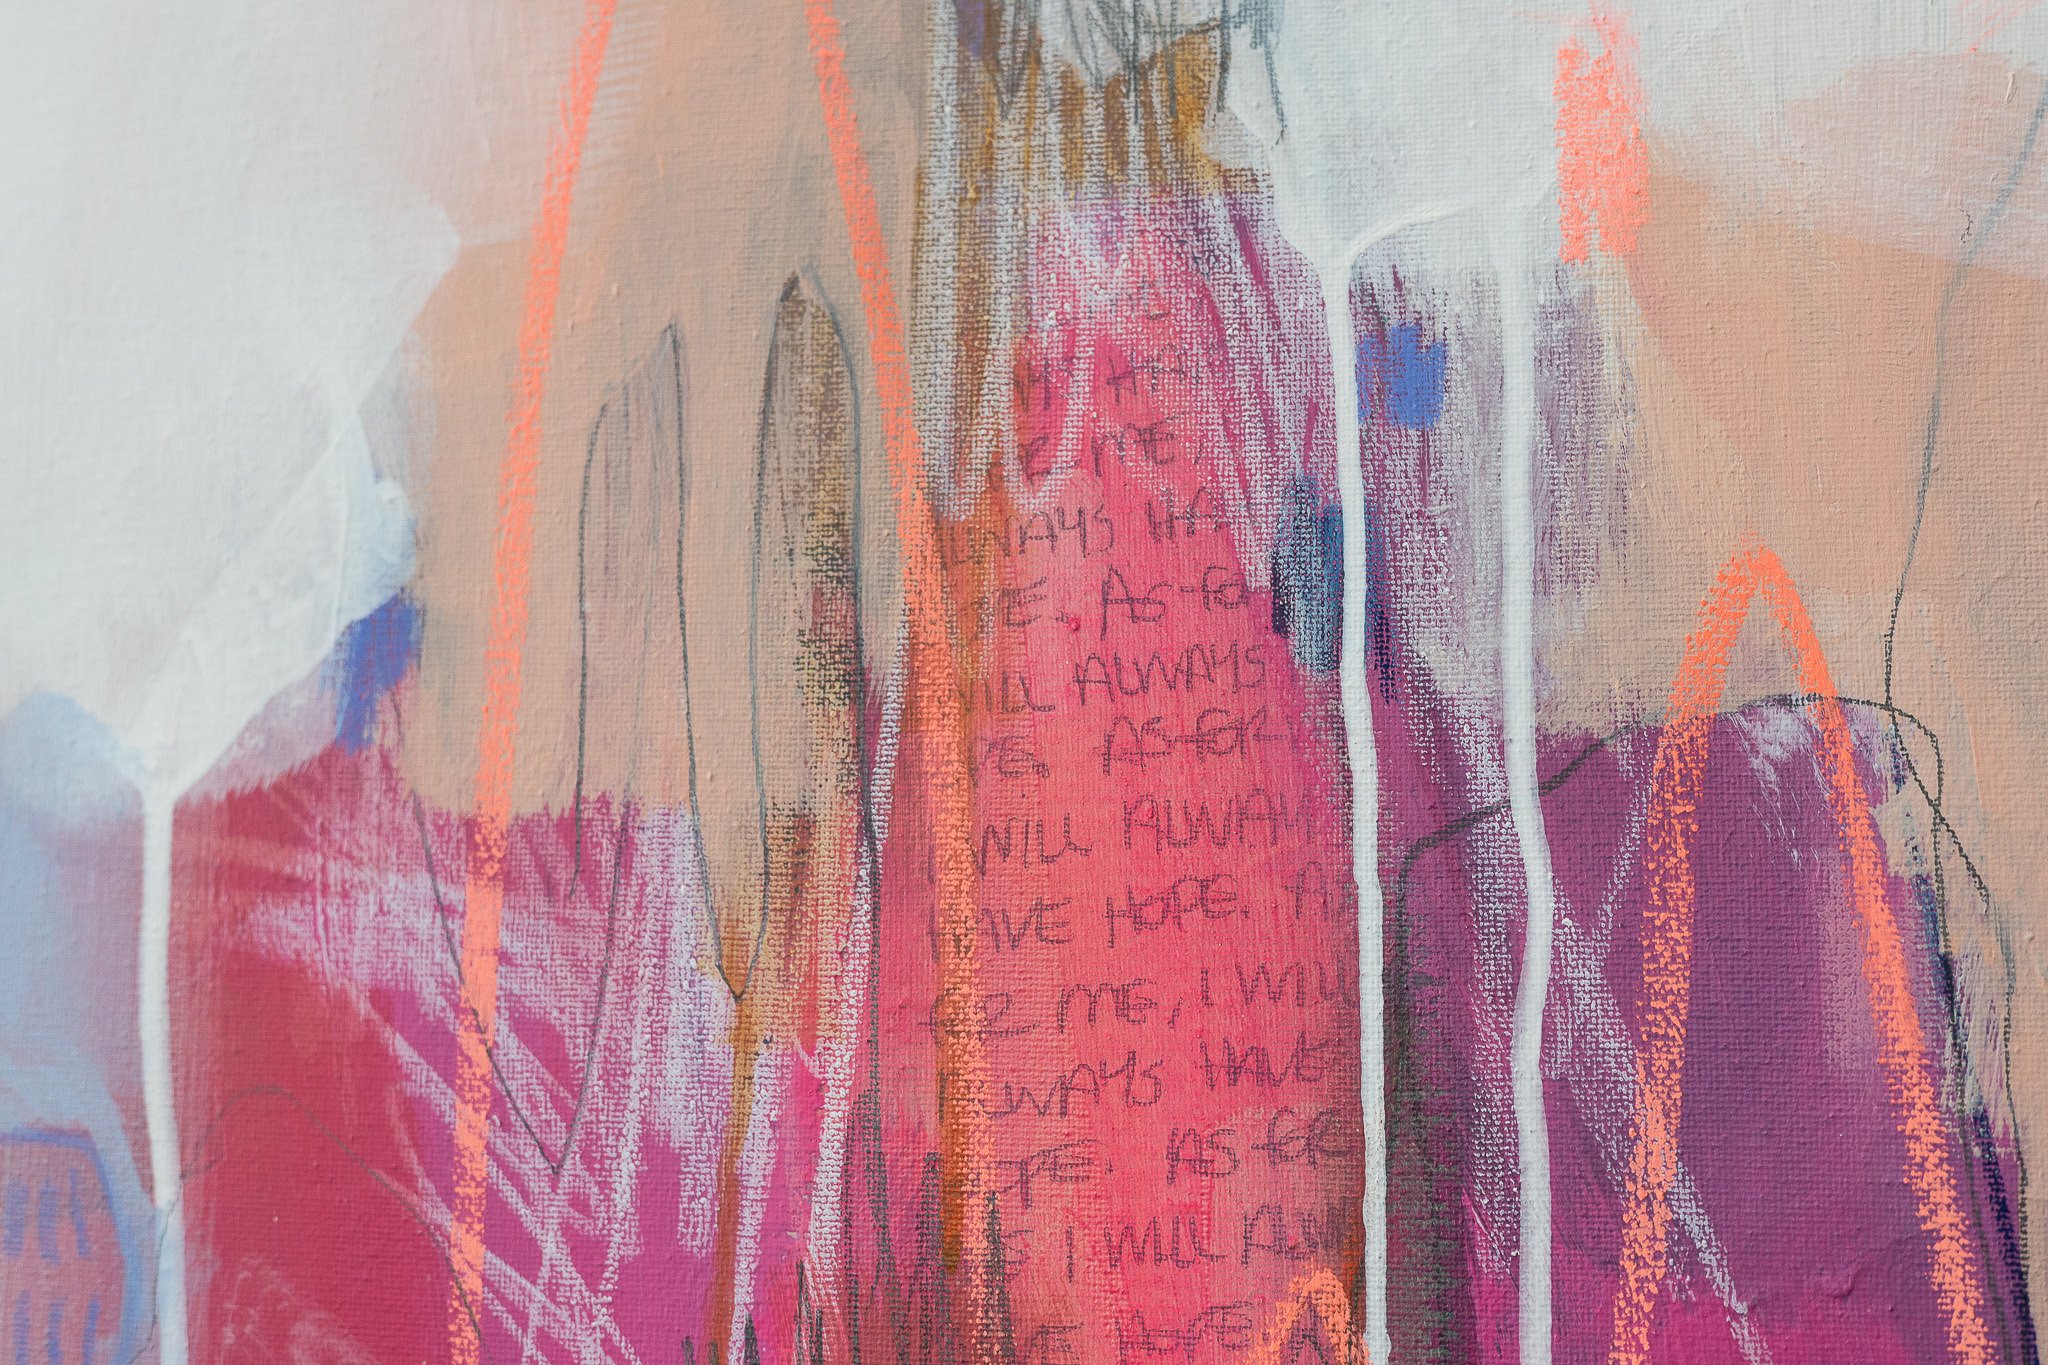 HA
ME,
WAYS HA
E. AS FO
WILL ALWAYS
AS FOR
WILL ALWAY
HAVE HOPE. A
ME, I WILL
LWAYS HAVE
PE. AS FOR
I WILL ALW
HOPE A